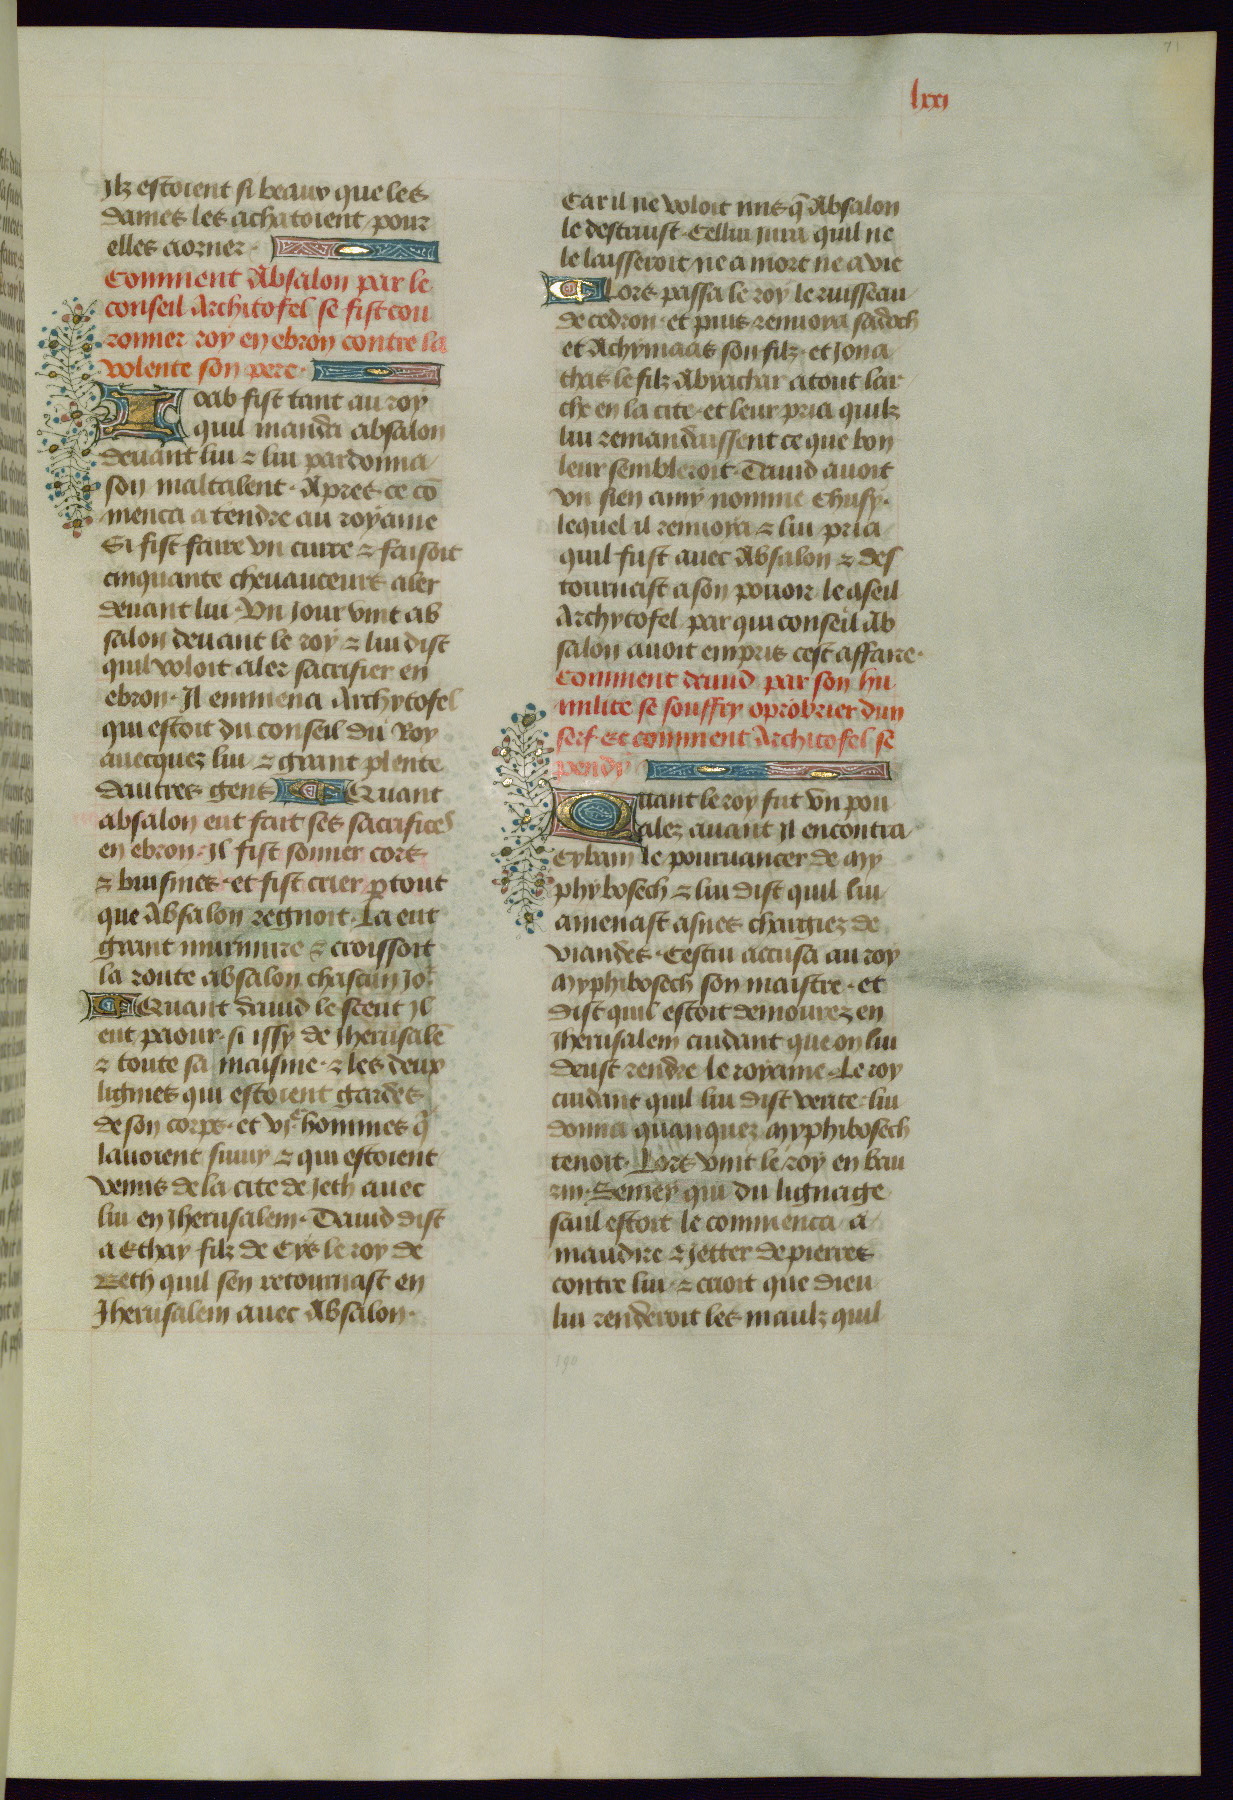 71
lxxj
Ilz estoient si beaux que les
dames les achatoient pour
elles aorner
Comment Absalon par le
conseil Architofel se fist cou
ronner roy en ebron contre la
volente son pere.
Ioab fist tant au roy
quil manda absalon
devant lui ⁊ lui pardonna
son maltalent. Apres ce cō
menca a tendre au royame
Si fist faire vn curre ⁊ faisoit
cinquante chevauceurs aler
devant lui. Un Jour vint ab
salon devant le roy ⁊ lui dist
quil voloit aler sacrifier en
ebron. Il emmena Archytofel
qui estoit du conseil du Roy
avecquez lui ⁊ grant plente
dautres gens Quant
absalon eut fait ses sacrifices
en ebron. Il fist sonner cors
⁊ buisines. et fist crier ꝑtout
que Absalon regnoit. La eut
grant murmure ⁊ croissoit
la route absalon chascun Joʳ.
Quant david le sceut Il
eut paour. si issy de Iherusalē
⁊ toute sa maisnie. ⁊ les deux
lignies qui estoient gardes
de son corps. et vjᶜ hommes q̄
lavoient sivuy ⁊ qui estoient
venus de la cite de Jeth avec
lui en Iherusalem. David dist
a Ethay filz de Cys le roy de
Geth quil sen retournast en
Iherusalem avec Absalon.
Car il ne voloit mis q̄ Absalon
le destruist. Cellui jura quil ne
le laisseroit ne a mort ne a vie
Lors passa le roy le ruisseau
de cedron. et puis renvoya sadoch
et Achymaas son filz. et Jona
thas le filz Abyachar a tout lar
che en la cite. et leur pria quilz
lui remandaissent ce que bon
leur sembleroit. David avoit
vn sien amy nomme Chusy.
lequel il renvoya ⁊ lui pria
quil fust avec Absalon ⁊ des
tournast a son povoir le aseil
Archytofel par qui conseil Ab
salon avoit empris cest affaire.
Comment david par son hu
milite se souffry oprobrier dun
serf. Et comment Architofel se
pendy
Quant le roy fut vn pou
alez avant Il encontra
Cybam le pourvancer de My
phybosech ⁊ lui dist quil lui
amenast asnes chargiez de
viandes. Cestui accusa au roy
Myphibosech son maistre. et
dist quil estoit demourez en
Iherusalem cuidant que on lui
deust rendre le royame. Le roy
cuidant quil lui dist verite. lui
donna quanquez Myphibosech
tenoit. Lors vint le roy en bau
rin. Semey qui du lignage
saul estoit le commenca a
maudire ⁊ jetter de pierres
contre lui. ⁊ crioit que dieu
lui renderoit les maulz quil
190